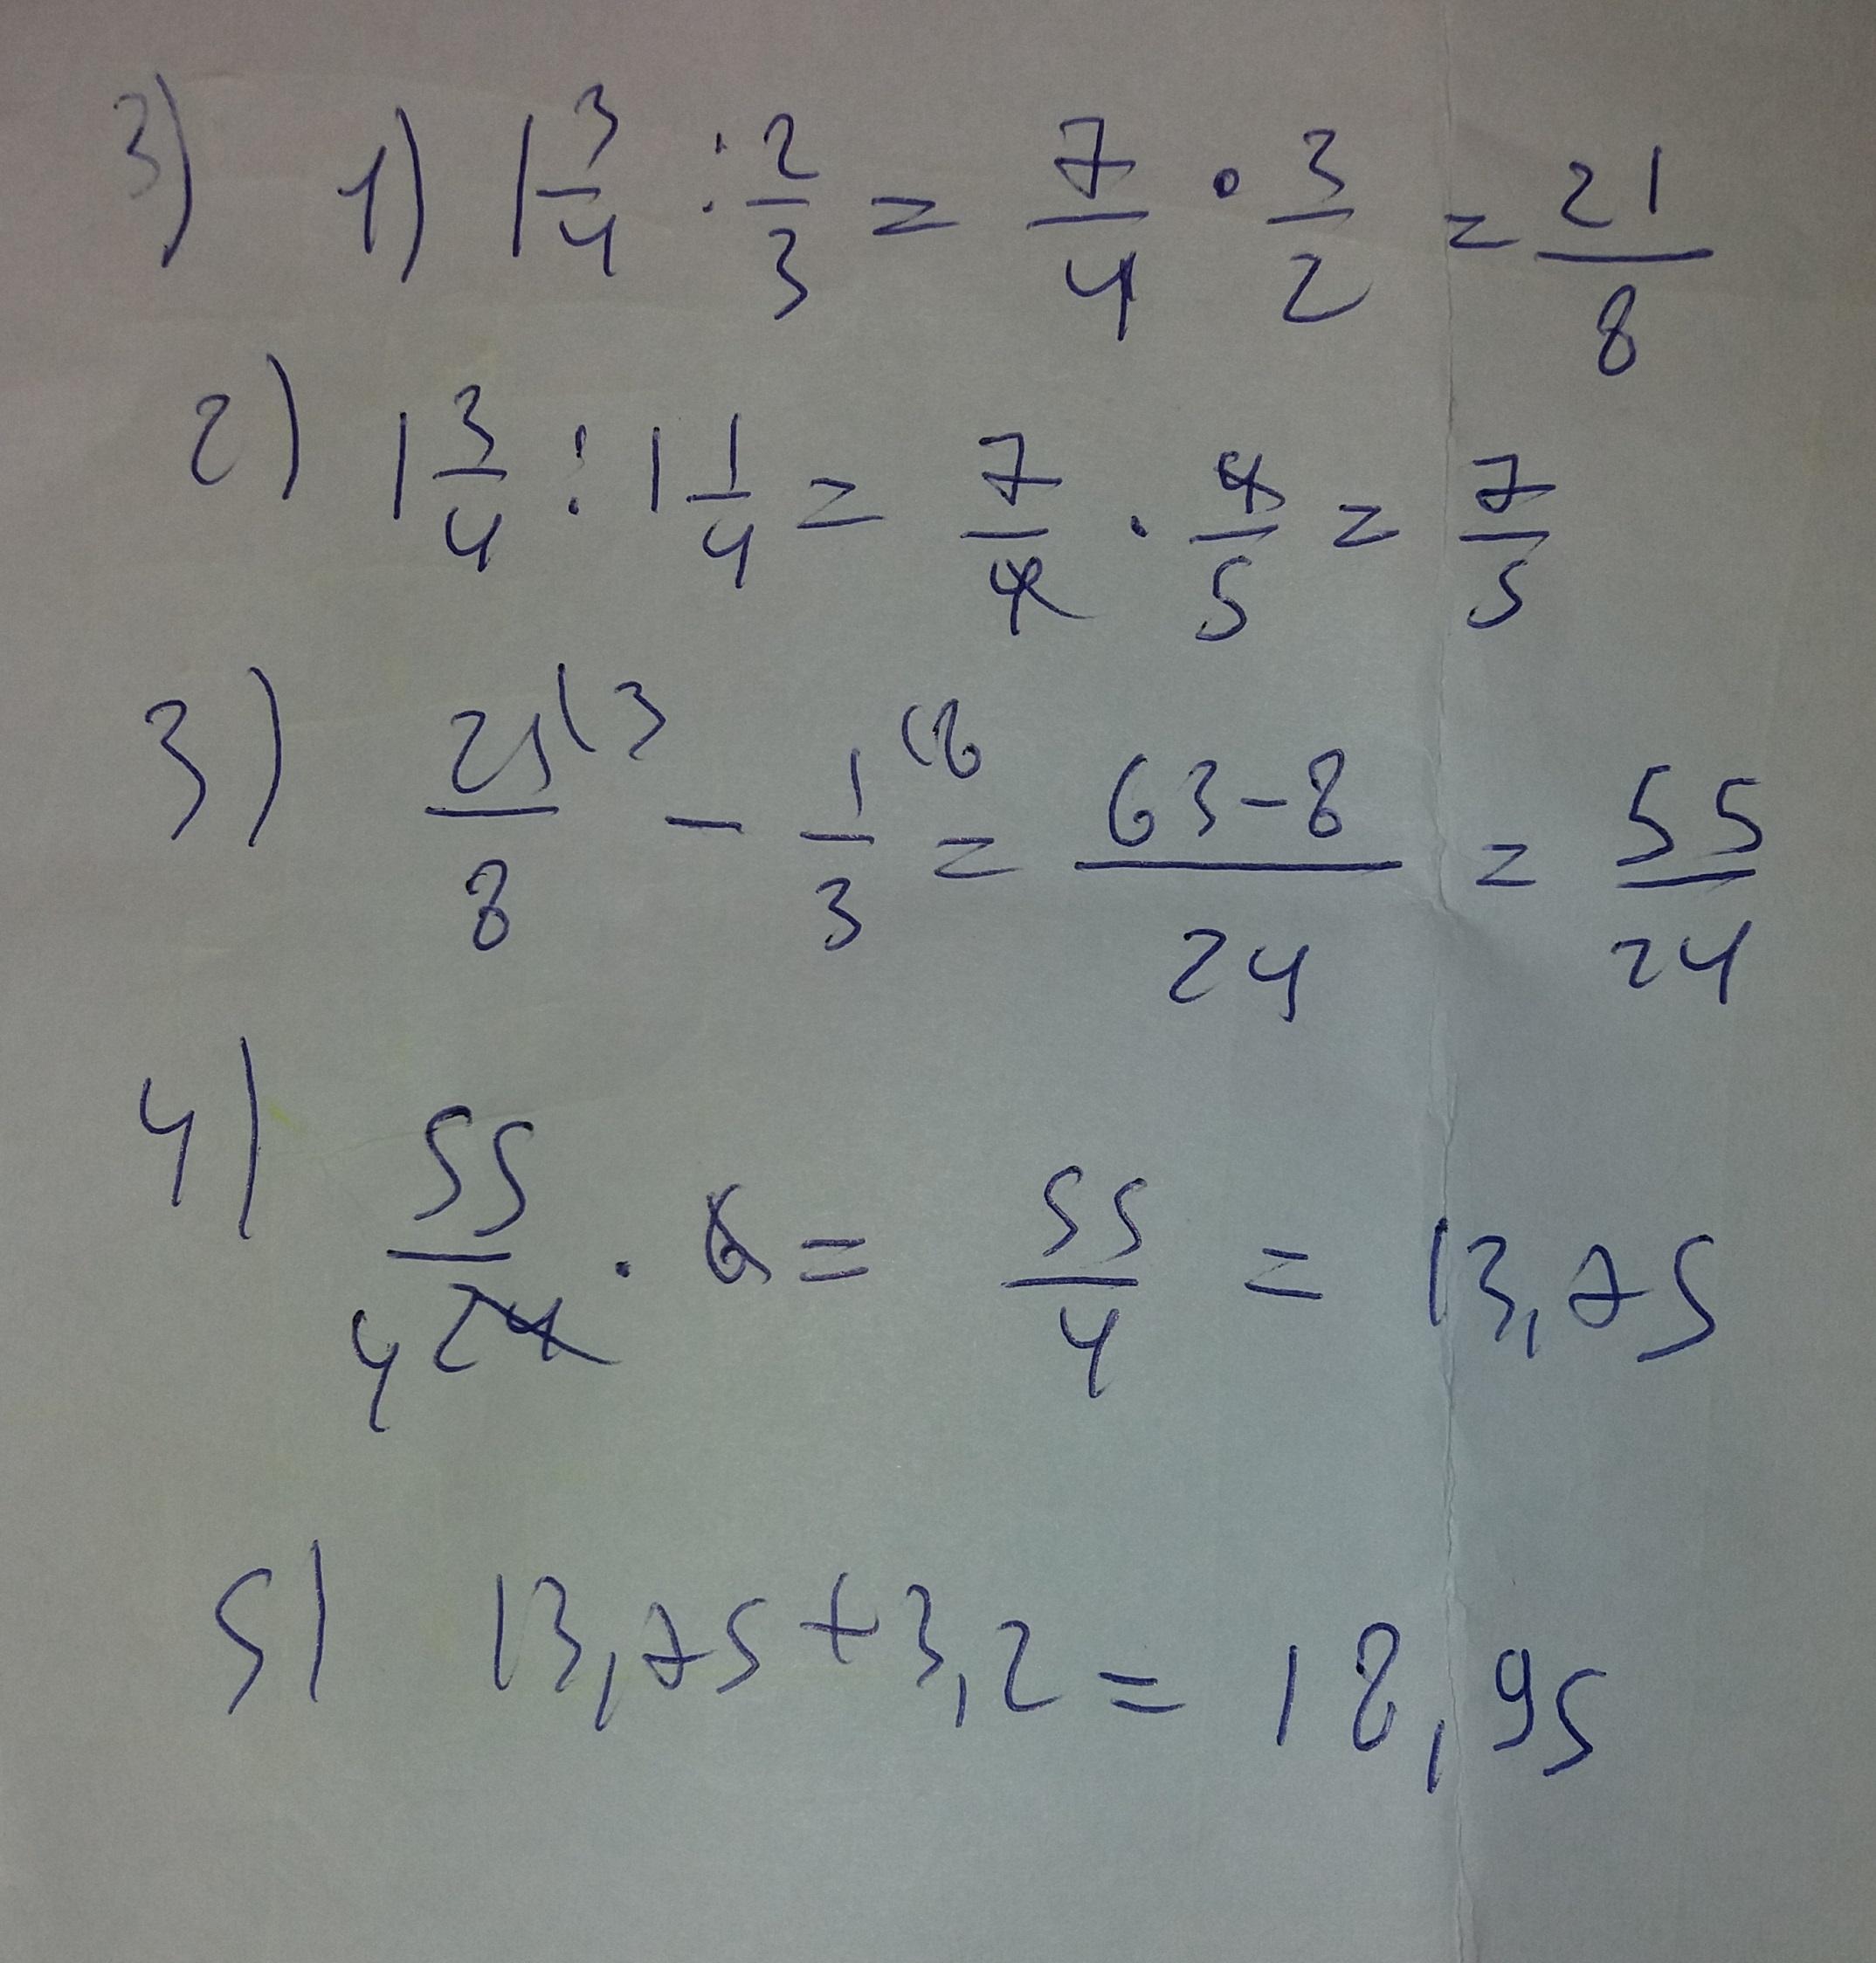 3) 1) 1 3/4 : 2/3 = 7/4 · 3/2 = 21/8
2) 1 3/4 : 1 1/4 = 7/4 · 4/5 = 7/5
3) 21/8 (3 - 1/3 (8 = 63-8/24 = 55/24
4) 55/24 4 · 6 = 55/4 = 13,75
5) 13,75 + 3,2 = 18,95